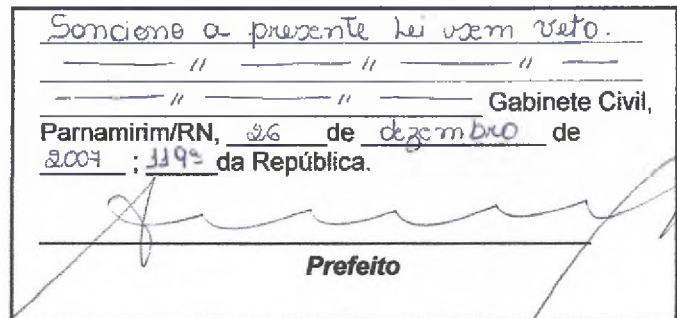 Sanciono a presente Lei sem veto.
—— // —— // —— // ——
—— // —— // —— Gabinete Civil,
Parnamirim/RN, 26 de dezembro de
2007 ; 119º da República.
Prefeito